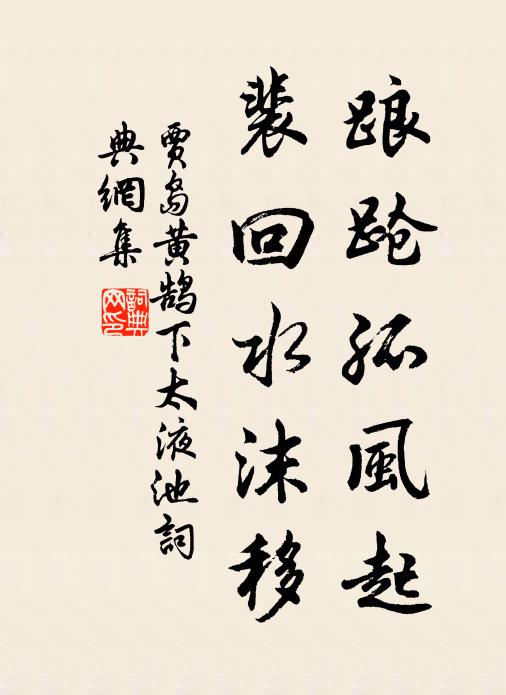 踉蹌孤風起
裴回水沫移
賈島黄鵠下太液池詞
典網集
詞典
网印